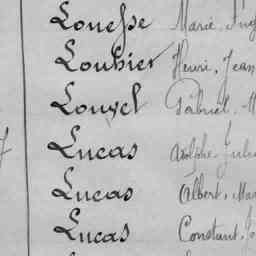 Louesse Marie, Aug
Loubier Henri, Jean
Louvel Gabriel, M
Lucas Adolphe, Julie
Lucas Albert, Mar
Lucas Constant, Jo